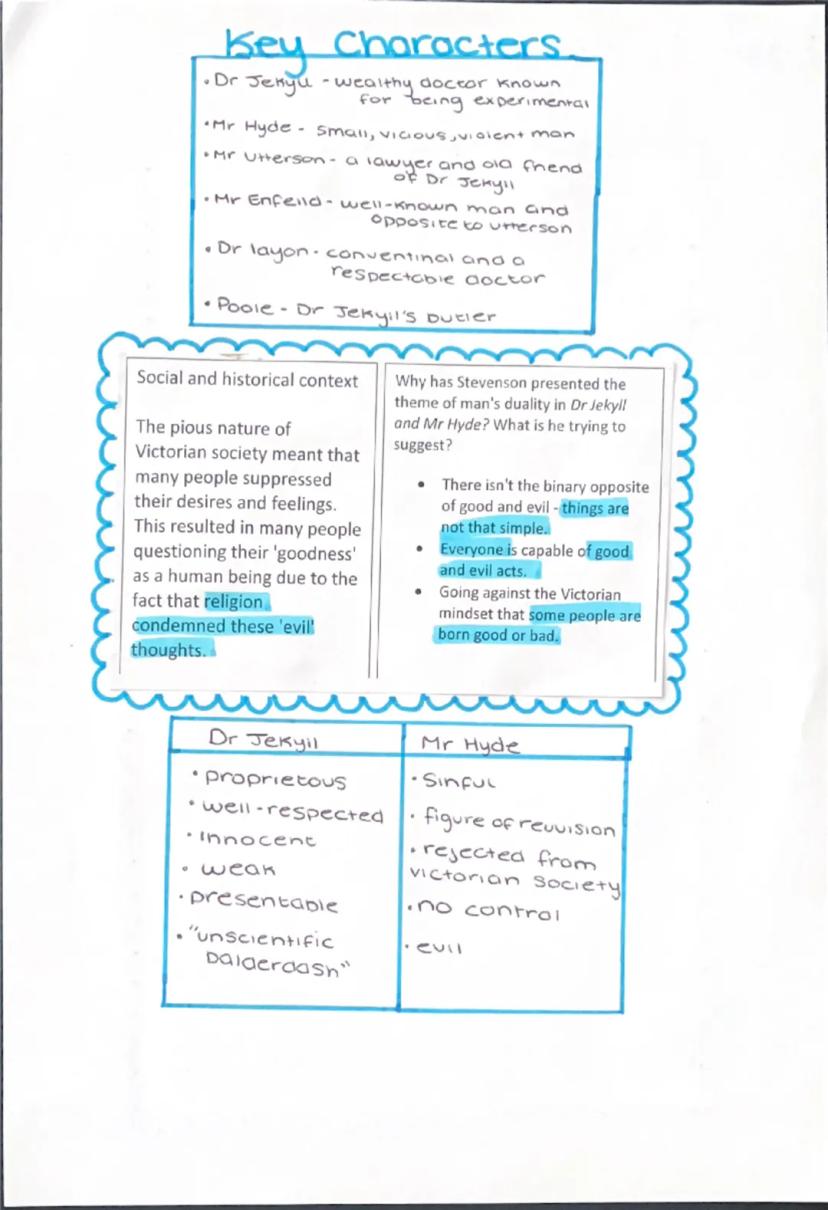 Key Characters
• Dr Jekyll - wealthy doctor known
for being experimental
• Mr Hyde - small, vicious, violent man
• Mr Utterson - a lawyer and old friend
of Dr Jekyll
• Mr Enfeild - well-known man and
opposite to utterson
• Dr layon - conventinal and a
respectable doctor
• Poole - Dr Jekyll's butler
Social and historical context
The pious nature of
Victorian society meant that
many people suppressed
their desires and feelings.
This resulted in many people
questioning their 'goodness'
as a human being due to the
fact that religion
condemned these 'evil'
thoughts.
Why has Stevenson presented the
theme of man's duality in Dr Jekyll
and Mr Hyde? What is he trying to
suggest?
• There isn't the binary opposite
of good and evil - things are
not that simple.
• Everyone is capable of good
and evil acts.
• Going against the Victorian
mindset that some people are
born good or bad.
Dr Jekyll
• proprietous
• well-respected
• innocent
• weak
• presentable
• "unscientific
balderdash"
Mr Hyde
• sinful
• figure of revulsion
• rejected from
victorian society
• no control
• evil